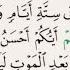 سِتَّةِ أَيَّامٍ
أَيُّكُمْ أَحْسَنُ
بَعْدِ الْمَوْتِ